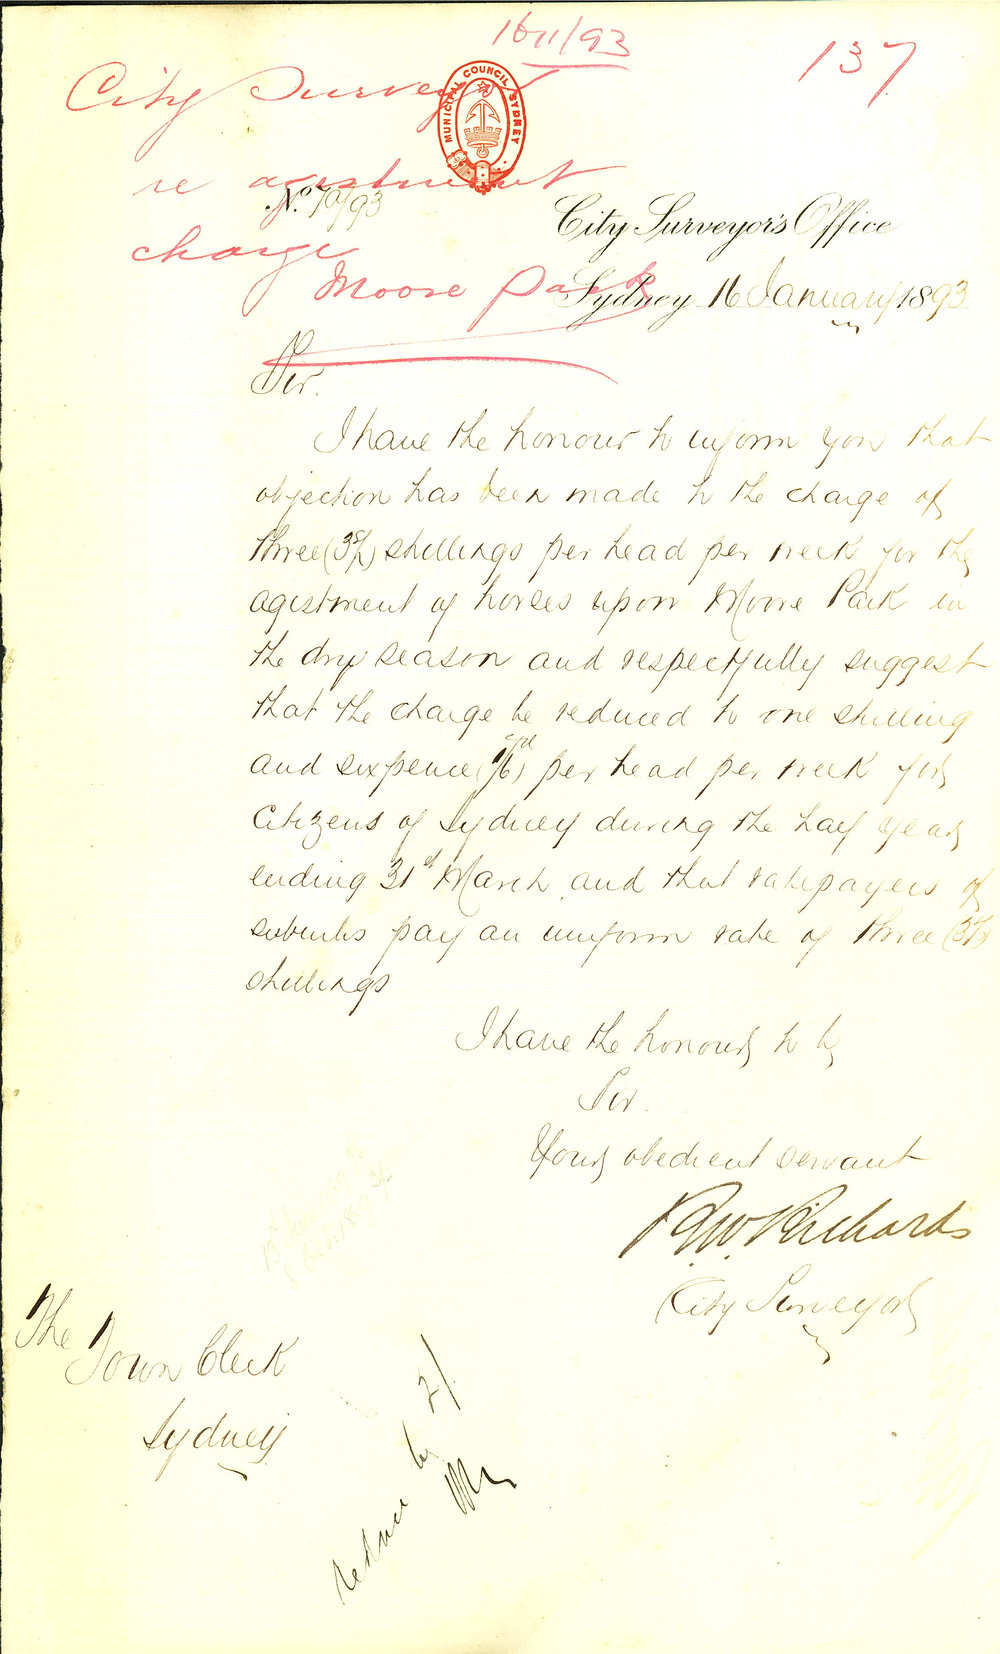 16/1/93
137
City Surveyor
MUNICIPAL COUNCIL SYDNEY
re agistment
No. 70/93
City Surveyor's Office
charge
Moore Park
Sydney 16 January 1893
Sir.
I have the honour to inform you that
objection has been made to the charge of
three (3s/) shillings per head per week for the
agistment of horses upon Moore Park in
the dry season and respectfully suggest
that the charge be reduced to one shilling
and sixpence (1/6d) per head per week for
Citizens of Sydney during the half year
ending 31st March and that ratepayers of
suburbs pay an uniform rate of three (3s/)
shillings
I have the honour to be
Sir.
Your obedient servant
R.W. Richards
City Surveyor
The
Town Clerk
Sydney
reduce to 2/.